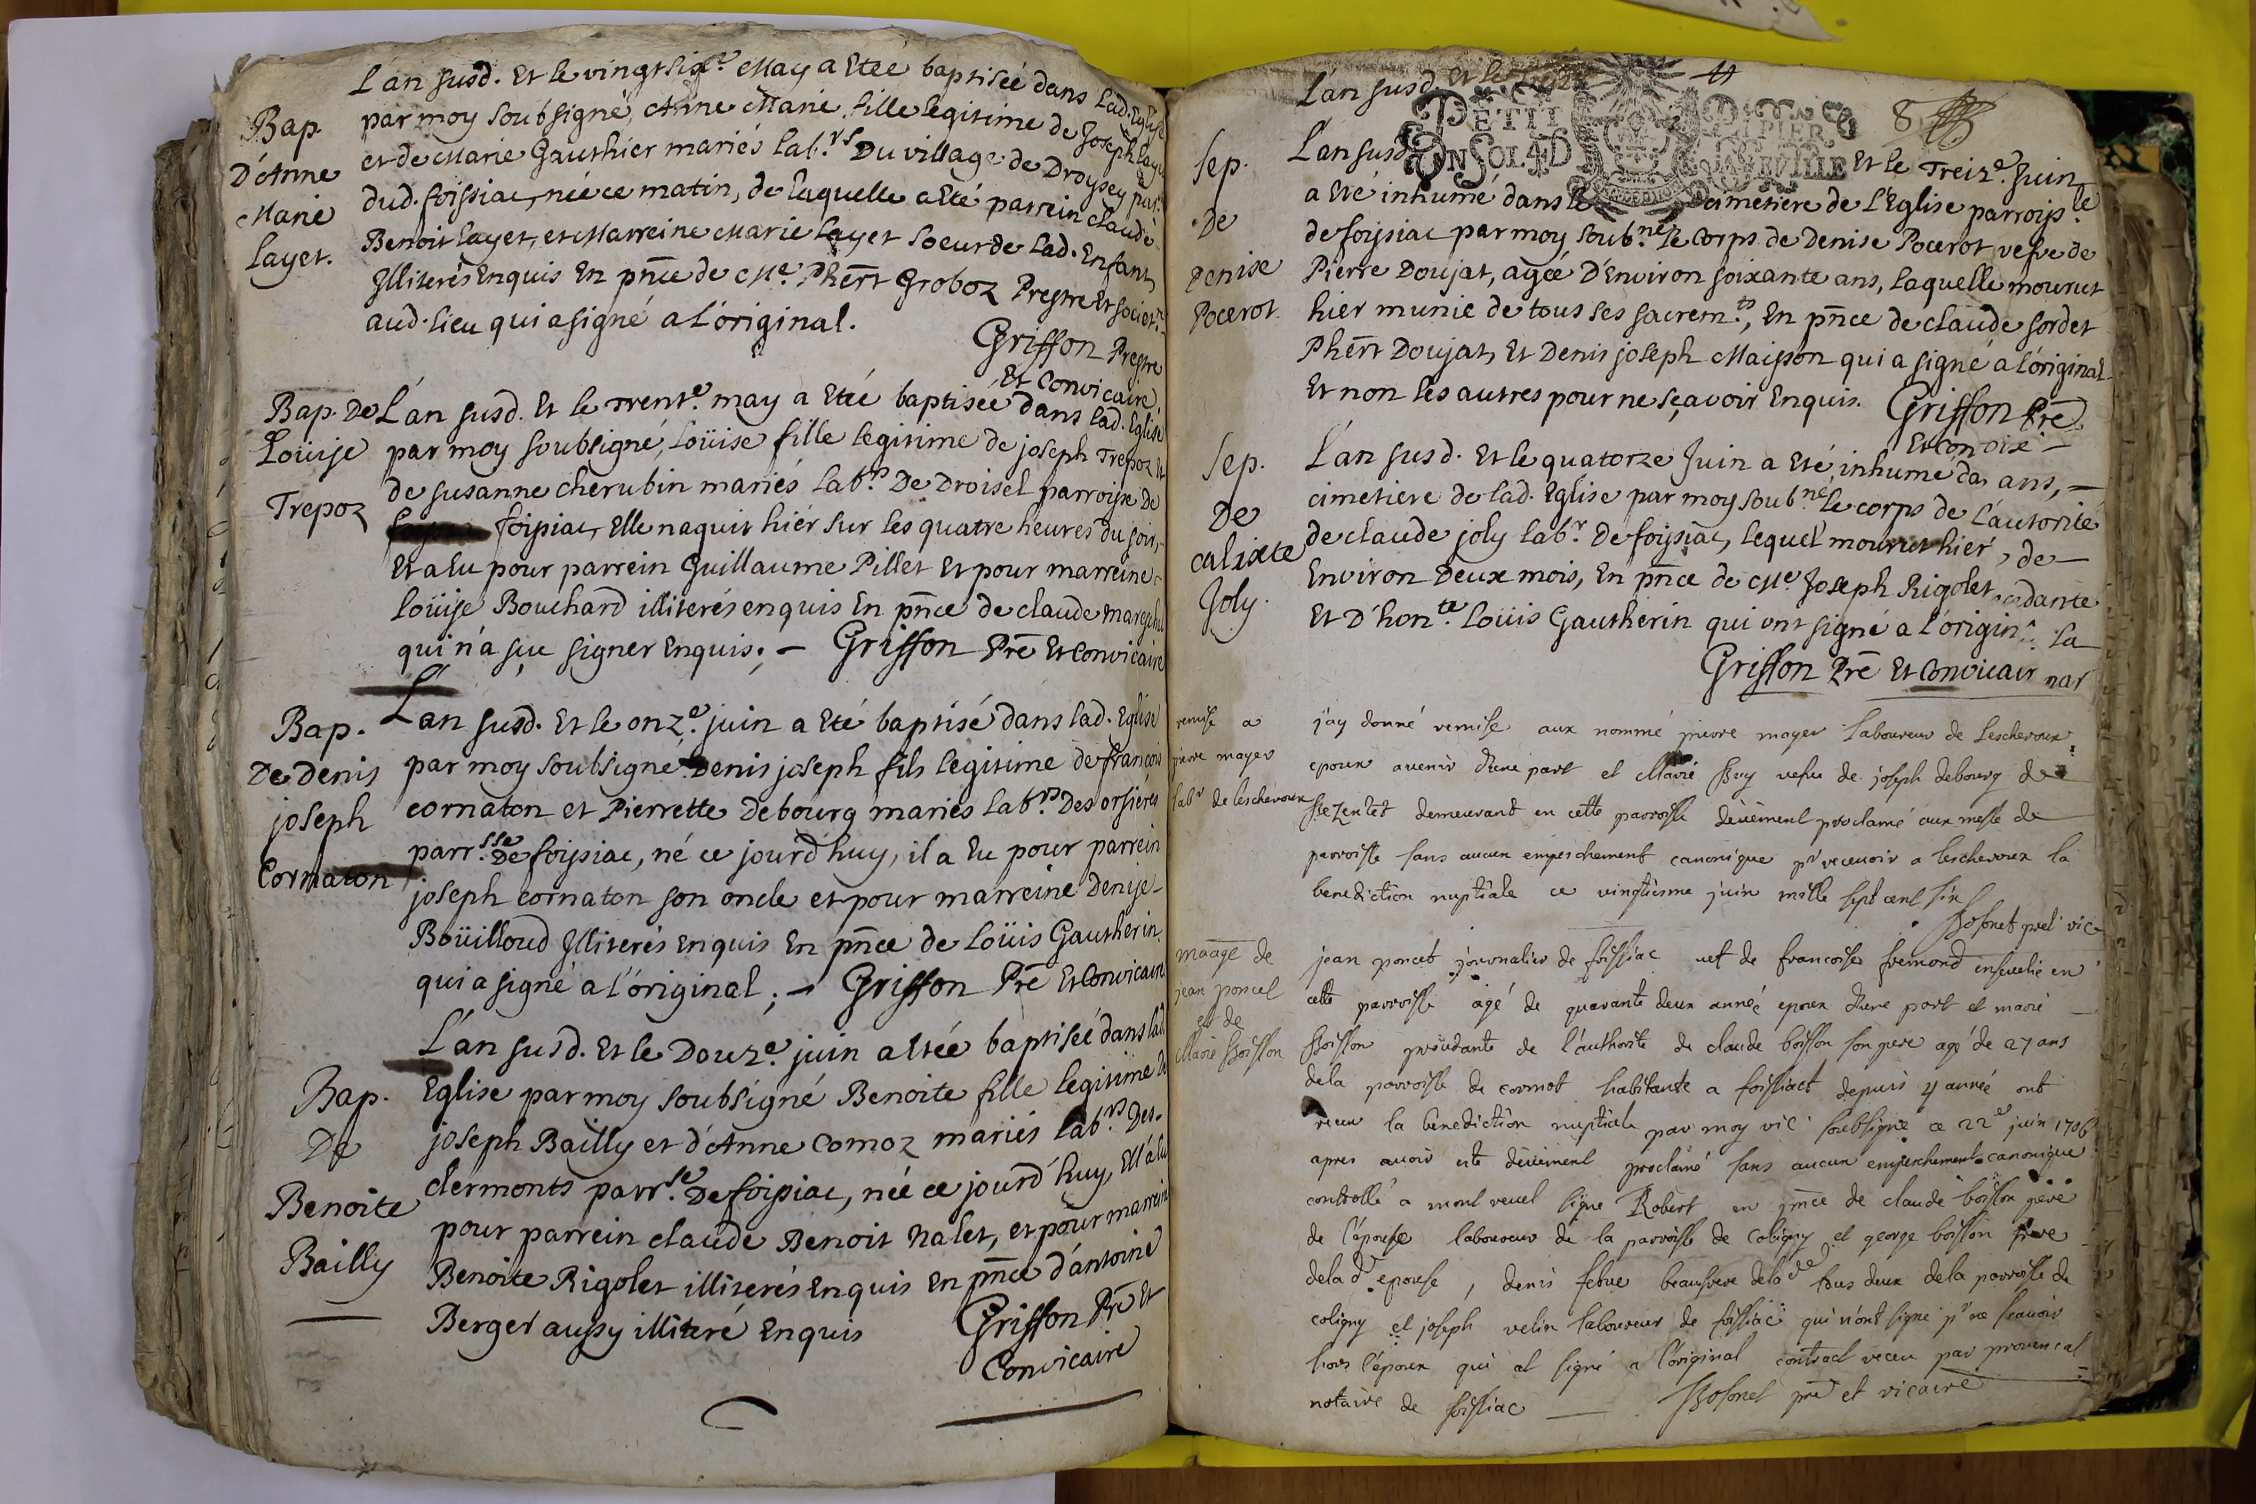 L'an susd. Et le vingt six.e May a Eteé baptiseé dans lad. Eglise
Bap. D'Anne Marie Layet.
par moy soubsigné, Anne Marie fille legitime de Joseph Layet
et de Marie Gauthier mariés lab.rs Du village de Droysey par.
dud. foissiac, née ce matin, de laquelle a Eté parrein Claude
Benoit Layet, et Marreine Marie Layet soeur de lad. Enfant,
Illiterés Enquis En pñce de Me. Phert Groboz Prestre Et societ.re
aud. lieu qui a signé a l'original.
Griffon Prestre
Et Convicaire
Bap. De Louise Trepoz
L'an susd. Et le Trent.e may a Eteé baptiseé dans lad. Eglise
par moy soubsigné, Loüise fille legitime de joseph Trepoz et
de susanne cherubin mariés lab.rs De Droisel parroisse De
foissiac, Elle naquit hiér sur les quatre heures du soir,
Et a Eu pour parrein Guillaume Pillet Et pour marreine
Loüise Bouchard illiterés enquis En pñce de claude
qui n'a sçu signer Enquis; — Griffon Pre Et Convicaire
Bap. De Denis joseph Cornaton
L'an susd. Et le onz.e juin a Eté baptisé dans lad. Eglise
par moy soubsigné Denis joseph fils legitime de françois
cornaton et Pierrette Debourg mariés lab.rs Des orsiéres
parr.sse De foissiac, né ce jourd'huy, il a Eu pour parrein
joseph cornaton son oncle et pour marreine Denise
Boüilloud Illiterés Enquis En pñce de Loüis Gautherin
qui a signé a l'original; — Griffon Pre Et Convicaire
Bap. De Benoite Bailly
L'an susd. Et le Douz.e juin a Eteé baptiseé dans lad.
Eglise par moy soubsigné Benoite fille legitime de
joseph Bailly et d'Anne Comoz mariés lab.rs Des
clermonts parr.se De foissiac, née ce jourd'huy, Ell'a Eu
pour parrein claude Benoit Nalet, et pour marrein
Benoite Rigolet illiterés Enquis En pñce d'antoine
Berger aussy illiteré Enquis
Griffon Pre Et
Convicaire
L'an susd. et le
PETIT PAPIER
UN SOL 4 D LA FEVILLE
8
Sep. De Denise Pocerot
L'an susd. Et le Treiz.e Juin
a Eté inhumé dans le cimetiere de L'Eglise parroiss.le
de foissiac par moy soub.né le corps de Denise Pocerot vefve de
Pierre Doujat, ageé D'Environ soixante ans, laquelle mourut
hier munie de tous ses sacrem.ts, En pñce de claude sordet
Phert Doujat, Et Denis joseph Maisson qui a signé a l'original
Et non les autres pour ne sçavoir Enquis. Griffon Pre
Et Convire
Sep. De calixte Joly.
L'an susd. Et le quatorze Juin a Eté inhumé da ans, —
cimetiere de lad. Eglise par moy soub.né le corps de l'autorité
de claude joly lab.r De foissiac, lequel mourut hier, de —
Environ Deux mois, En pñce de Me. Joseph Rigolet dante
Et D'hon.te Loüis Gautherin qui ont signé a l'origin la
Griffon Pre Et Convicair nar
remise a pierre mayer lab.r de lescheroux
j'ay donné remise aux nommé pierre mayer laboureur de Lescheroux
epoux avenir d'une part et Marie Buy vefve de joseph debourg de
demeurant en cette parroisse deüement proclamé aux messe de
parroisse sans aucun empeschement canonique pr recevoir a lescheroux la
benediction nuptiale ce vingtiesme juin mille sept cent six
Bosonet pret vic
maage de jean poncet et de Marie Boisson
jean poncet journalier de foissiac vef de francoise fremond ensevelie en
cette parroisse agé de quarante deux année epoux d'une part et marie
Boisson procedante de l'authorité de claude boisson son pere agé de 27 ans
de la parroisse de cormot habitante a foissiact depuis 4 année ont
receu la benediction nuptiale par moy vic soubsigné ce 22e juin 1706
apres avoir esté deüement proclamé sans aucun empeschement canonique
controllé a montrevel signé Robert en pñce de claude boisson pere
de l'épouse laboureur de la parroisse de coligny et george boisson frere
dela de epouse, denis febvre beaufrere dela de tous deux dela parroisse de
coligny et joseph velin laboureur de foissiac qui n'ont signé pr ne scavoir
hors l'époux qui at signé a l'original contract receu par provencal
notaire de foissiac — Bosonet pre et vicaire